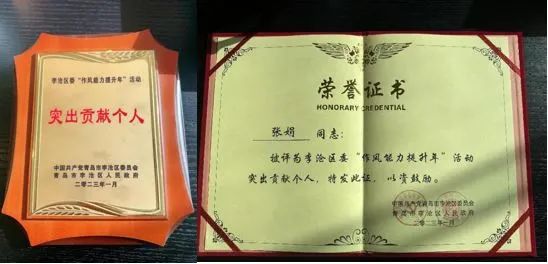 李沧区委“作风能力提升年”活动
突出贡献个人
中国共产党青岛市李沧区委员会
青岛市李沧区人民政府
二〇二三年一月
荣誉证书
HONORARY CREDENTIAL
张娟 同志：
被评为李沧区委“作风能力提升年”活动
突出贡献个人，特发此证，以资鼓励。
中国共产党青岛市李沧区委员会
青岛市李沧区人民政府
二〇二三年一月